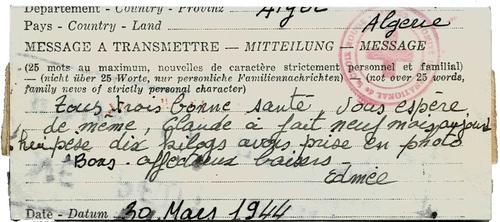 Département - Country - Provinz Alger
Pays - Country - Land Algerie
MESSAGE A TRANSMETTRE — MITTEILUNG — MESSAGE
(25 mots au maximum, nouvelles de caractère strictement personnel et familial)
— (nicht über 25 Worte, nur persönliche Familiennachrichten) — (not over 25 words,
family news of strictly personal character)
Tous trois bonne santé, Vous espère
de même, Claude à fait neuf mois aujour
hui pèse dix kilogs avons prise en photo
Bons affectueux baisers
Edmée
Date - Datum 30 Mars 1944